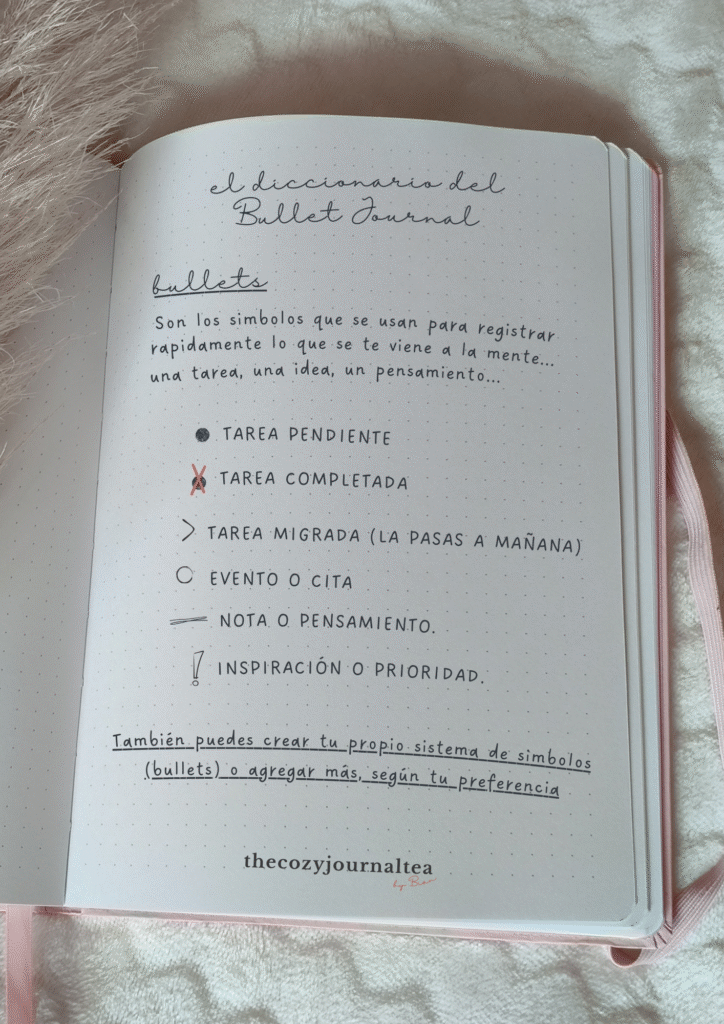 el diccionario del
Bullet Journal
bullets
Son los simbolos que se usan para registrar
rapidamente lo que se te viene a la mente...
una tarea, una idea, un pensamiento...
TAREA PENDIENTE
TAREA COMPLETADA
> TAREA MIGRADA (LA PASAS A MAÑANA)
EVENTO O CITA
— NOTA O PENSAMIENTO.
! INSPIRACIÓN O PRIORIDAD.
También puedes crear tu propio sistema de simbolos
(bullets) o agregar más, según tu preferencia
thecozyjournaltea
by